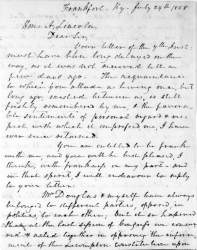 Frankfort, Ky. July 29th 1858
Hon. A. Lincoln
Dear Sir,
Your letter of the 7th Inst.
must have been long delayed on the
way, as it was not received till a
few days ago. The acquaintance
to which you allude as having one, but
long ago, existed between us, is still
freshly remembered by me, & the favora-
ble sentiments of personal regard & res-
pect with which it impressed me, I have
ever since retained.
You are entitled to be frank
with me, and you will be best pleased, I
think, with frankness on my part, and
in that spirit, I will endeavour to reply
to your letter.
Mr Douglas & myself have always
belonged to different parties, opposed, in
politics, to each other, but it so happened
that at the last session of Congress we concur-
red & acted together in opposing the enforce-
ment of the Lecompton constitution upon